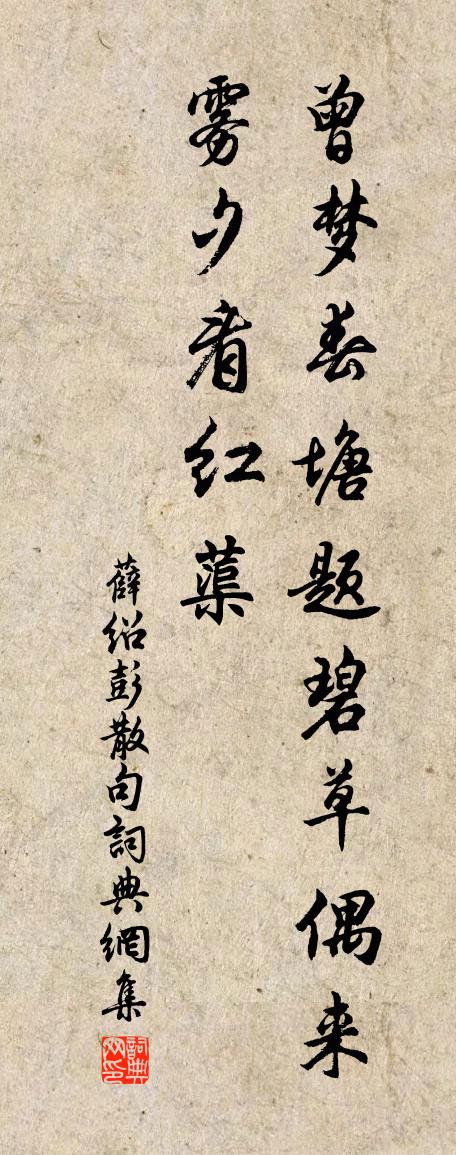 曾梦春塘题碧草偶来
雾夕看红蕖
薛绍彭散句詞典網集
詞典
网印